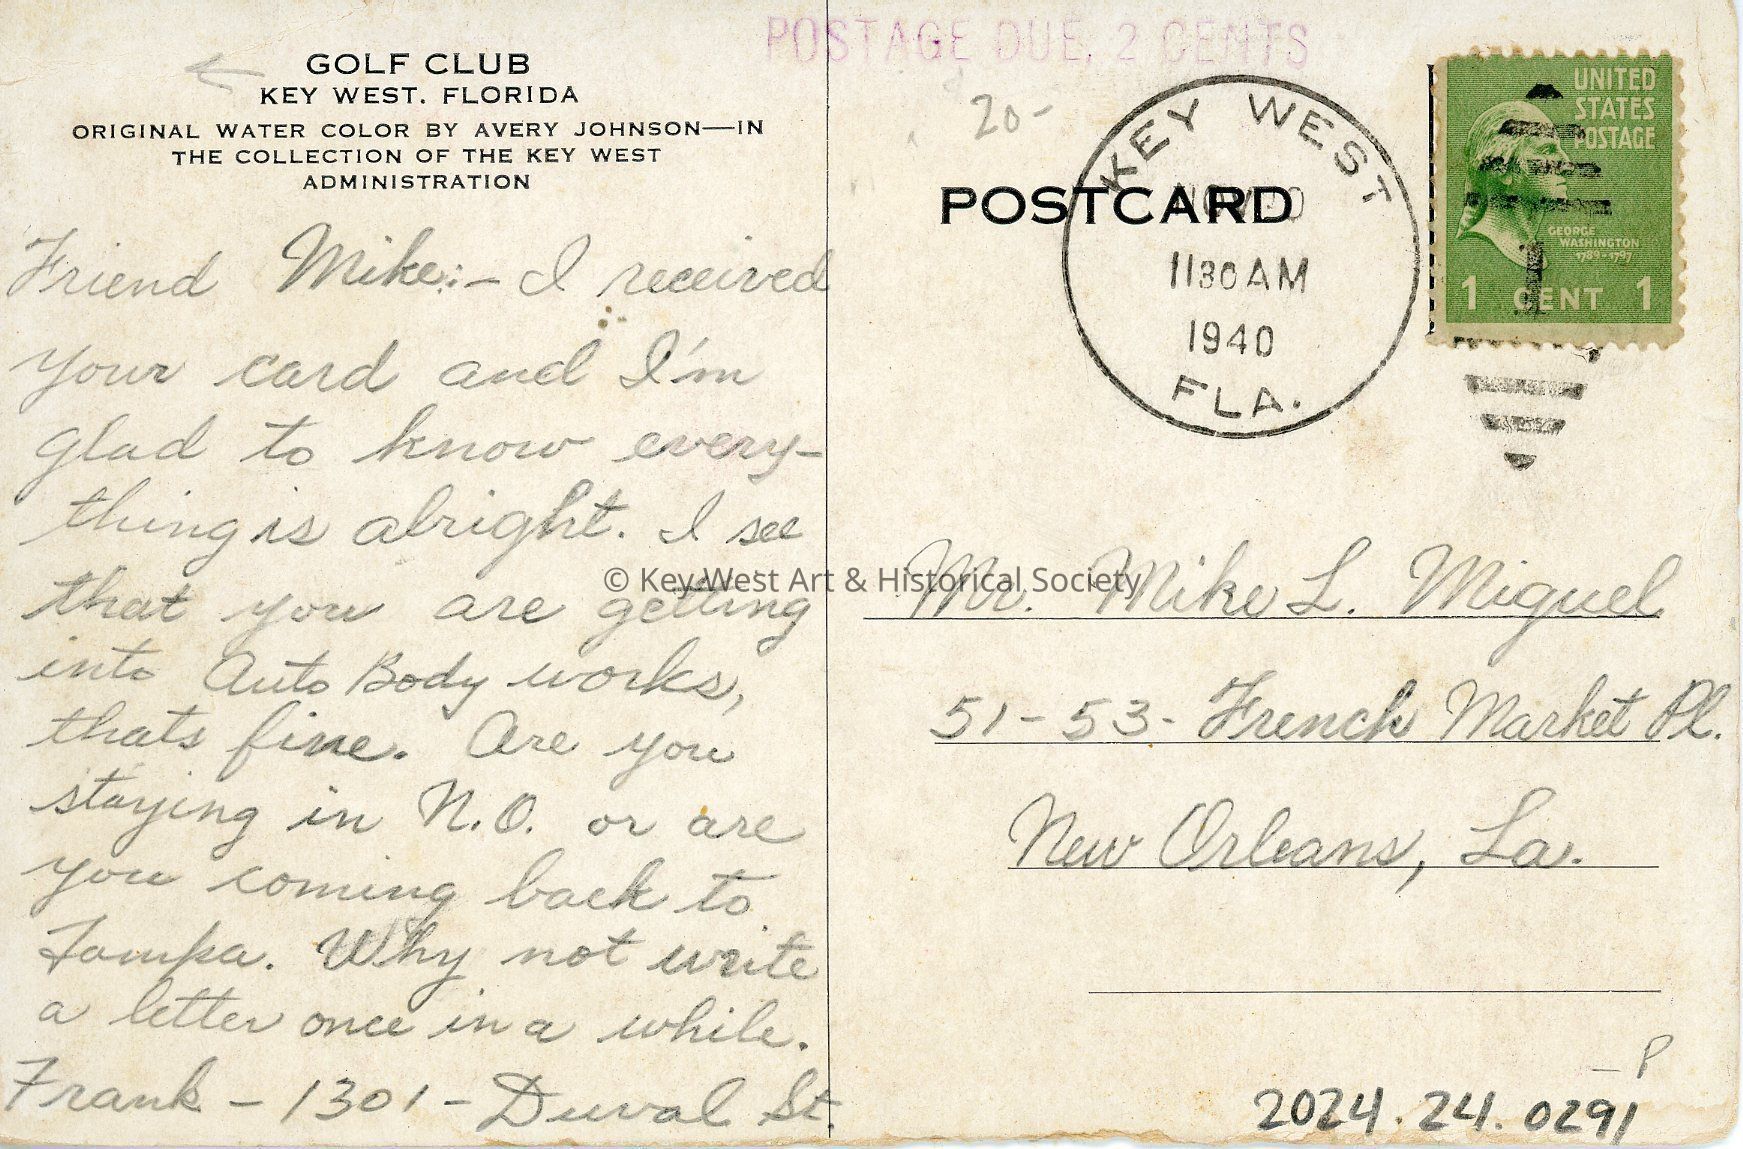 POSTAGE DUE, 2 CENTS
GOLF CLUB
KEY WEST. FLORIDA
ORIGINAL WATER COLOR BY AVERY JOHNSON—IN
THE COLLECTION OF THE KEY WEST
ADMINISTRATION
Friend Mike:- I received
your card and I'm
glad to know every-
thing is alright. I see
that you are getting
into Auto Body works,
thats fine. Are you
staying in N.O. or are
you coming back to
Tampa. Why not write
a letter once in a while.
Frank - 1301 - Duval St.
20-
POSTCARD
KEY WEST
1130 AM
1940
FLA.
UNITED
STATES
POSTAGE
GEORGE
WASHINGTON
1789-1797
1 CENT 1
© Key West Art & Historical Society
Mr. Mike L. Miguel
51-53- French Market Pl.
New Orleans, La.
-P
2024.24.0291